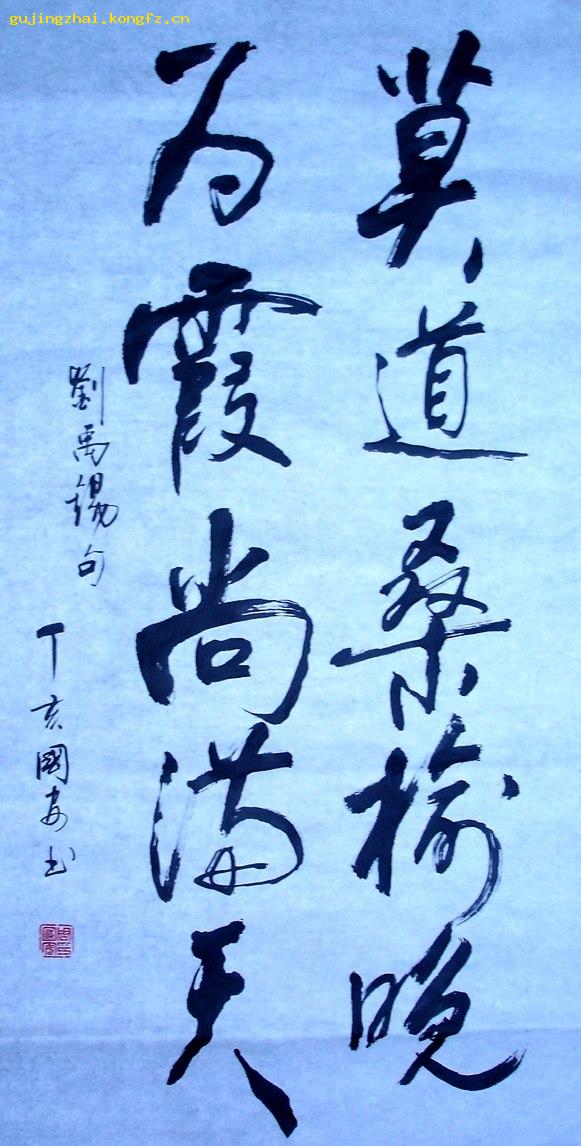 莫道桑榆晚
为霞尚满天
劉禹锡句
丁亥國安书
gujingzhai.kongfz.cn